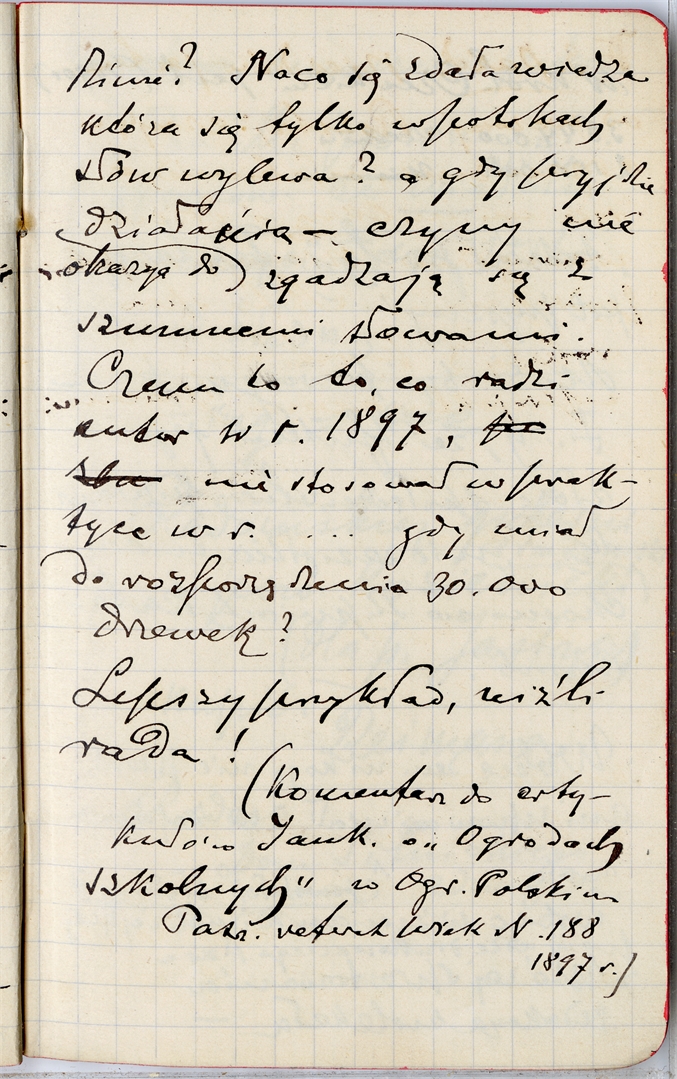 Naco się zdała wiedza
która się tylko w potokach
słów wylewa? a gdy przyjdzie
okazya do
działania — czyny nie
zgadzają się z
szumnemi słowami.
Czemu to to, co radzi
autor w r. 1897,
nie stosował w prak-
tyce w r. ... gdy miał
do rozporządzenia 30.000
drzewek?
Lepszy przykład, niźli
rada!
(Komentarz do arty-
kułów Jank. o „Ogrodach
szkolnych" w Ogr. Polskim
Patrz. Wiek N. 188
1897 r.)